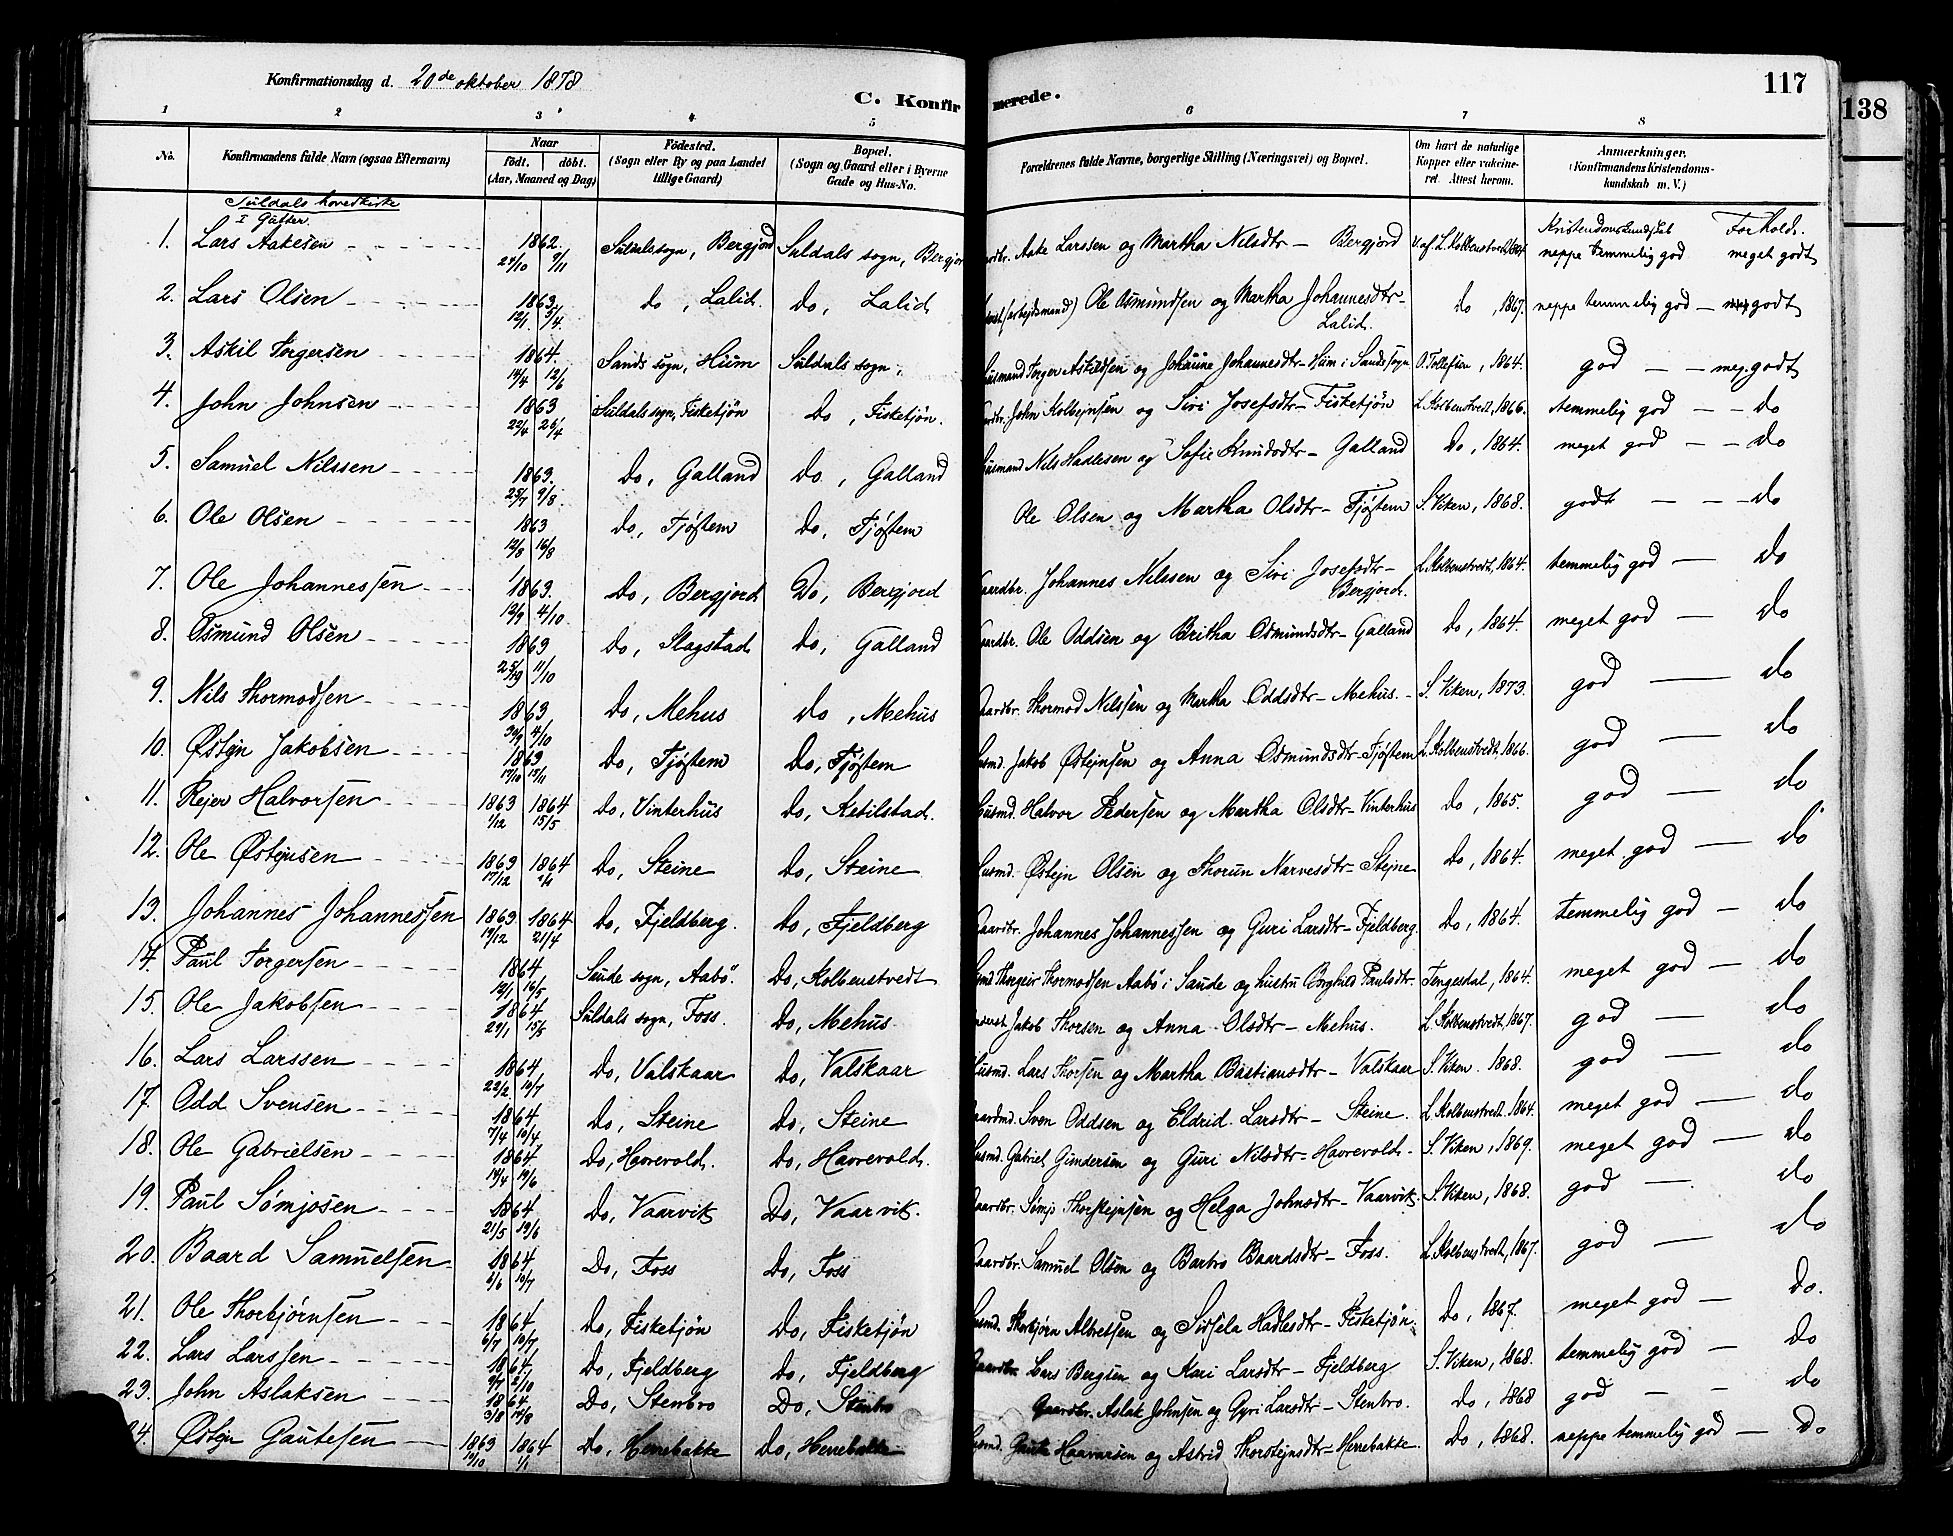 Konfirmationsdag d. 20de oktober 1878
C. Konfirmerede.
117
138
1 2 3 4 5 6 7 8
No. Konfirmandens fulde Navn (ogsaa Efternavn) Naar født. døbt. (Aar, Maaned og Dag) Fødested. (Sogn eller By og paa Landet tillige Gaard) Bopæl. (Sogn og Gaard eller i Byerne Gade og Hus-No. Forældrenes fulde Navne, borgerlige Stilling (Næringsvei) og Bopæl. Om havt de naturlige Kopper eller vakcineret. Attest herom. Anmærkninger. (Konfirmandens Kristendomskundskab m. V.)
Suldals hovedkirke
I Gutter.
Kristendomskundskab Forhold.
1. Lars Aakesen 1862. 24/10 9/11 Suldals sogn, Bergjord Suldals sogn, Bergjord Aake Larssen og Martha Nilsdtr – Bergjord V. af L. Kolbenstvedt, neppe temmelig god meget godt
2. Lars Olsen 1863 12/1 5/4 do, Lalid. do, Lalid (arbejdsmand) Ole Osmundsen og Martha Johannesdtr – Lalid. do, 1867. neppe temmelig god – godt
3. Askil Torgersen 1864. 14/4 12/6 Sands sogn, Hüm Suldals sogn, Husmand Torger Askildsen og Johanne Johannesdtr – Hüm i Sands sogn O. Tollefsen, 1864. god – – meg. godt
4. John Johnsen 1863 22/4 26/4 Suldals sogn, Fisketjøn do, Fisketjøn. John Kolbejnsen og Siri Josefsdtr – Fisketjøn L. Kolbenstvedt, 1866. temmelig god – – do
5. Samuel Nilssen 1863. 25/7 9/8 do, Galland do, Galland Husmand Nils Hadlesen og Sofie Knudsdtr – Galland do, 1864. meget god – – do
6. Ole Olsen 1863 12/8 16/8 do, Fjøstem do, Fjøstem Ole Olsen og Martha Olsdtr – Fjøstem S. Viken, 1868. godt – – do
7. Ole Johannessen 1863. 12/9 4/10 do, Bergjord do, Bergjord Gaardbr. Johannes Nilssen og Siri Josefsdtr – Bergjord. L. Kolbenstvedt, 1864. temmelig god – do
8. Osmund Olsen 1863 25/9 11/10 do, Slagstad do, Galland Gaardbr. Ole Oddsen og Britha Osmundsdtr – Galland do, 1864. meget god – do
9. Nils Thormodsen 1863 30/9 4/10 do, Mehus do, Mehus Gaardbr. Thormod Nilssen og Martha Oddsdtr – Mehus. – S. Viken, 1873. god – do
10. Østejn Jakobsen 1863 17/10 15/11 do, Fjøstem do, Fjøstem Husmd. Jakob Østejnsen og Anna Osmundsdtr – Fjøstem L. Kolbenstvedt, 1866. god – do
11. Rejer Halvorsen 1863 1/12 1864 15/5 do, Vinterhus do, Ketilstad. Husmd. Halvor Pedersen og Martha Olsdtr – Vinterhus do, 1865. god – do
12. Ole Østejnsen 1863 17/12 1864 do, Steine do, Steine Husmd. Østejn Olsen og Thorun Narvesdtr – Stejne do, 1864. meget god – do
13. Johannes Johannessen 1863 19/12 1864 21/4 do, Fjeldberg. do, Fjeldberg Gaardbr. Johannes Johannessen og Guri Larsdtr – Fjeldberg. do, 1864. temmelig god – do
14. Paul Torgersen 1864 12/1 16/5 Saude sogn, Aabø. do, Kolbenstvedt Thorgeir Thormodsen Aabø i Saude og hustru Borghild Paulsdtr. Tengesdal, 1864. meget god – do
15. Ole Jakobsen 1864 29/1 15/5 Suldals sogn, Foss. do, Mehus. Jakob Thorsen og Anna Olsdtr – Mehus. L. Kolbenstvedt, 1867. god – do
16. Lars Larssen 1864, 22/2 10/7 do, Valskaar do, Valskaar Husmd. Lars Thorsen og Martha Bastiansdtr – Valskaar S. Viken. 1868. god – do
17. Odd Svensen 1864 7/4 10/4 do, Steine do, Steine Gaardmd. Sven Oddsen og Eldrid Larsdtr – Steine. L. Kolbenstvedt, 1864. meget god – do
18. Ole Gabrielsen 1864 14/4 19/6 do, Havrevold. do, Havrevold. Husmd. Gabriel Gundersen og Guri Nilsdtr – Havrevold – S. Viken, 1869. meget god – do
19. Paul Sømjosen 1864 21/5 19/6 do, Vaarvik do, Vaarvik. Gaardbr. Sømjo Thorstejnsen og Helga Johnsdtr – Vaarvik. S. Viken, 1868. god – do
20. Baard Samuelsen 1864, 2/6 10/7 do, Foss do, Foss Gaardbr. Samuel Olsen og Barbro Baardsdtr – Foss. L. Kolbenstvedt, 1867. god – do
21. Ole Thorbjørnsen 1864, 6/7 10/7, do, Fisketjøn do, Fisketjøn Husmd. Thorbjørn Albretsen og Sissela Hadlesdtr – Fisketjøn. do, 1867. meget god – do.
22. Lars Larssen 1864, 9/7 2/10 do, Fjeldberg do, Fjeldberg Gaardbr. Lars Bergsen og Kari Larsdtr – Fjeldberg S. Viken, 1868. temmelig god – do
23. John Aslaksen 1864 3/8 14/8 do, Stenbro do, Stenbro Gaardbr. Aslak Johnsen og Gyri Larsdtr – Stenbro. do, 1868 god – – do
24. Østejn Gautesen 1863 19/10 1864 1/1 do, Herrebakke do, Herrebakke Husmd. Gaute Haavarsen og Astrid Thorstejnsdtr – Herrebakke. do, 1868. neppe temmelig god – do